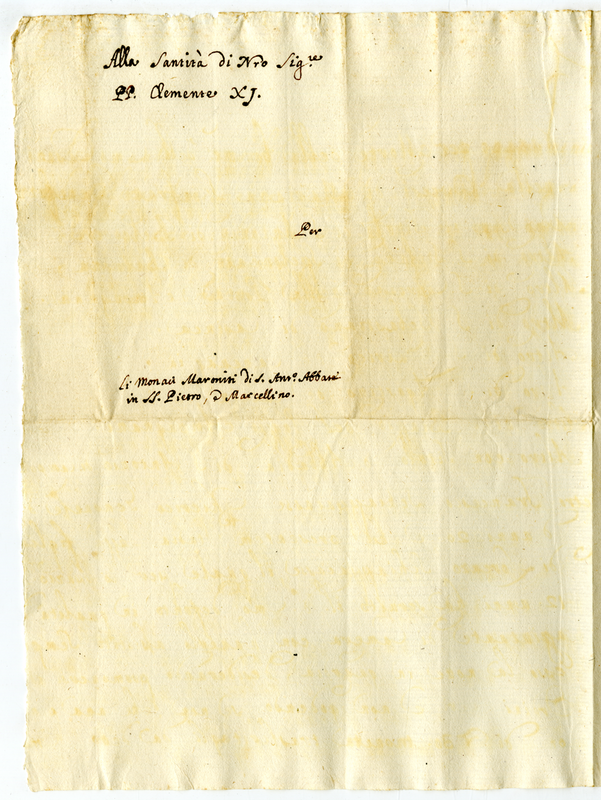 Alla Santità di Nro Sig.re
PP. Clemente XJ.
Per
Li Monaci Maroniti di S. Ant.o Abbate
in SS. Pietro, e Marcellino.